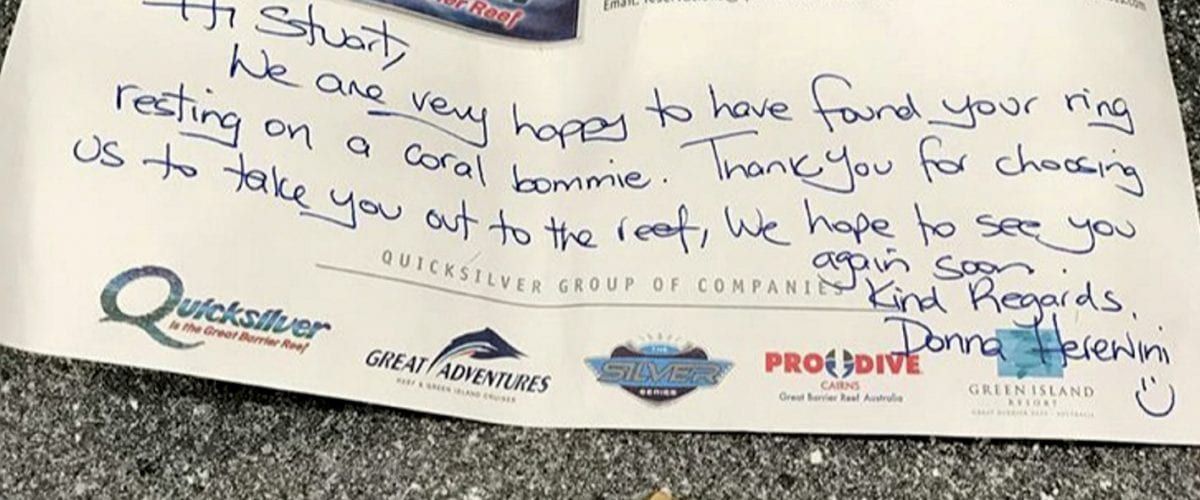 or Reef
Email:
Hi Stuart,
We are very happy to have found your ring
resting on a coral bommie. Thank you for choosing
us to take you out to the reef, We hope to see you
again soon.
Kind Regards,
Donna Herewini
QUICKSILVER GROUP OF COMPANIES
Quicksilver
is the Great Barrier Reef
GREAT ADVENTURES
REEF & GREEN ISLAND CRUISES
THE
SILVER
SERIES
PRO DIVE
CAIRNS
Great Barrier Reef Australia
GREEN ISLAND
RESORT
GREAT BARRIER REEF · AUSTRALIA